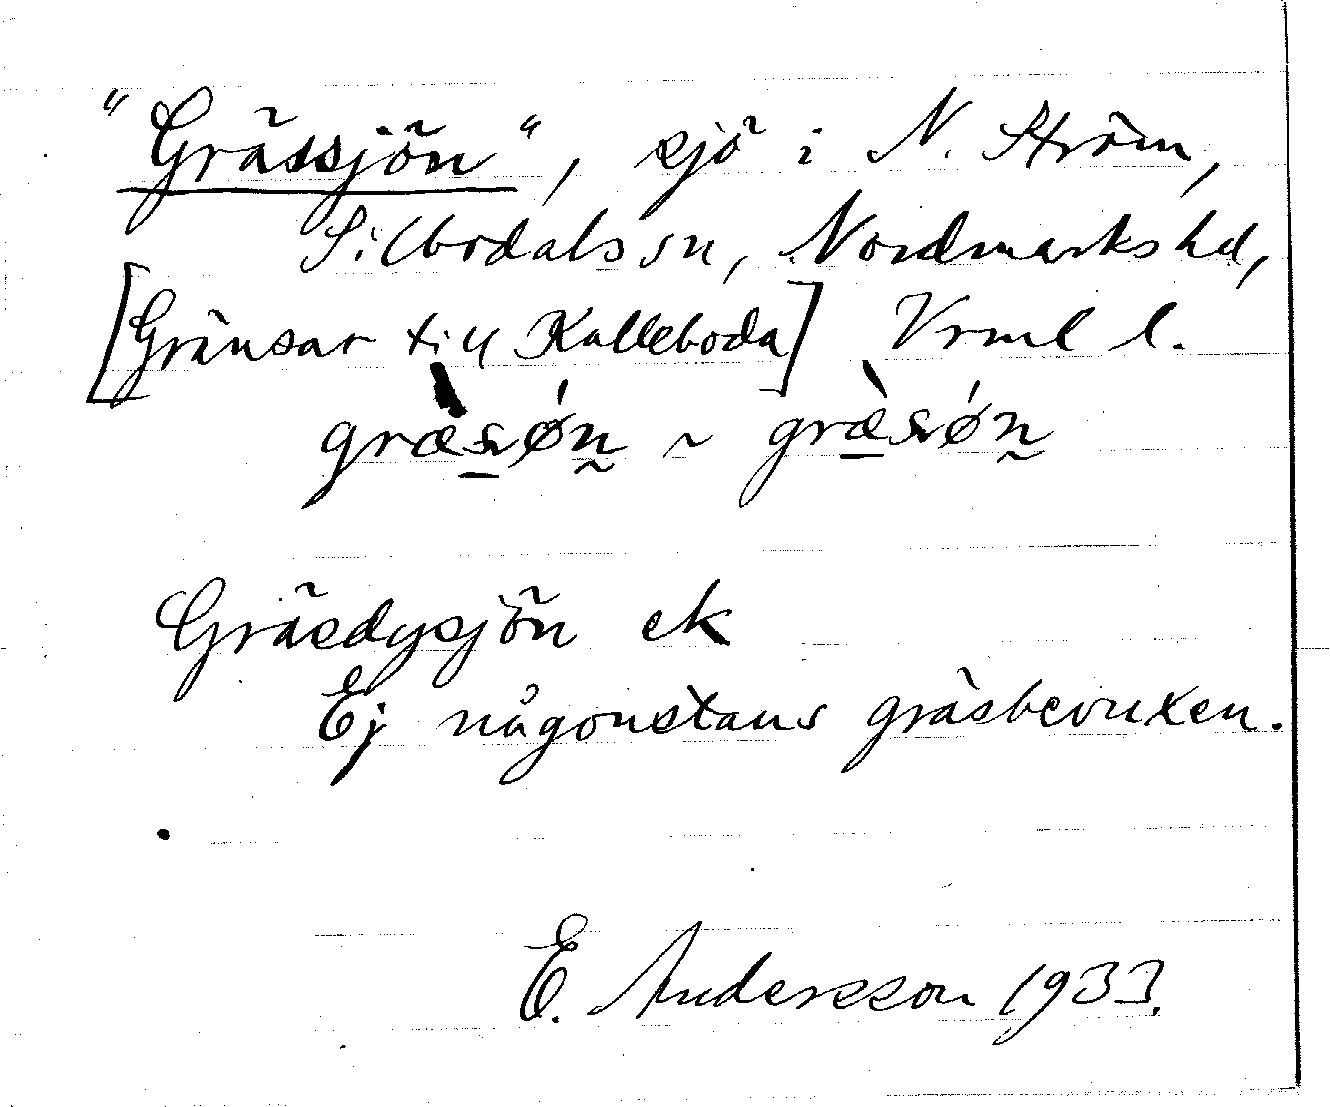 "Grässjön", sjö i N. Ström,
Silbodals sn, Nordmarks hd,
[Gränsar till Kalleboda] Vrml l.
græ̀s̠ǿn̰ ~ græ̠̀sǿn̰
Gräsdysjön ek
Ej någonstans gräsbevuxen.
E. Andersson 1933.